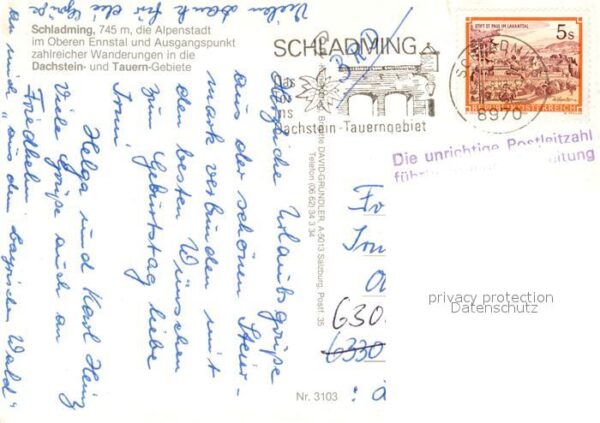 Schladming, 745 m, die Alpenstadt
im Oberen Ennstal und Ausgangspunkt
zahlreicher Wanderungen in die
Dachstein- und Tauern-Gebiete
Herzliche Urlaubsgrüße
aus der schönen Steier-
mark verbunden mit
den besten Wünschen
zum Geburtstag liebe
Irmi
Helga und Karl Heinz
Viele Grüße auch an
Friedhelm.
Vielen Dank für die Grüße
an mich "aus dem bayrischen Wald"
Nr. 3103
DAVID GRÜNDLER, A-5013 Salzburg, Postf. 35
Telefon (06 62) 34 3 34
SCHLADMING
Dachstein-Tauerngebiet
SCHLADMING
8970
STIFT ST. PAUL IM LAVANTTAL
5s
REPUBLIK ÖSTERREICH
Die unrichtige Postleitzahl
630
6330
privacy protection
Datenschutz